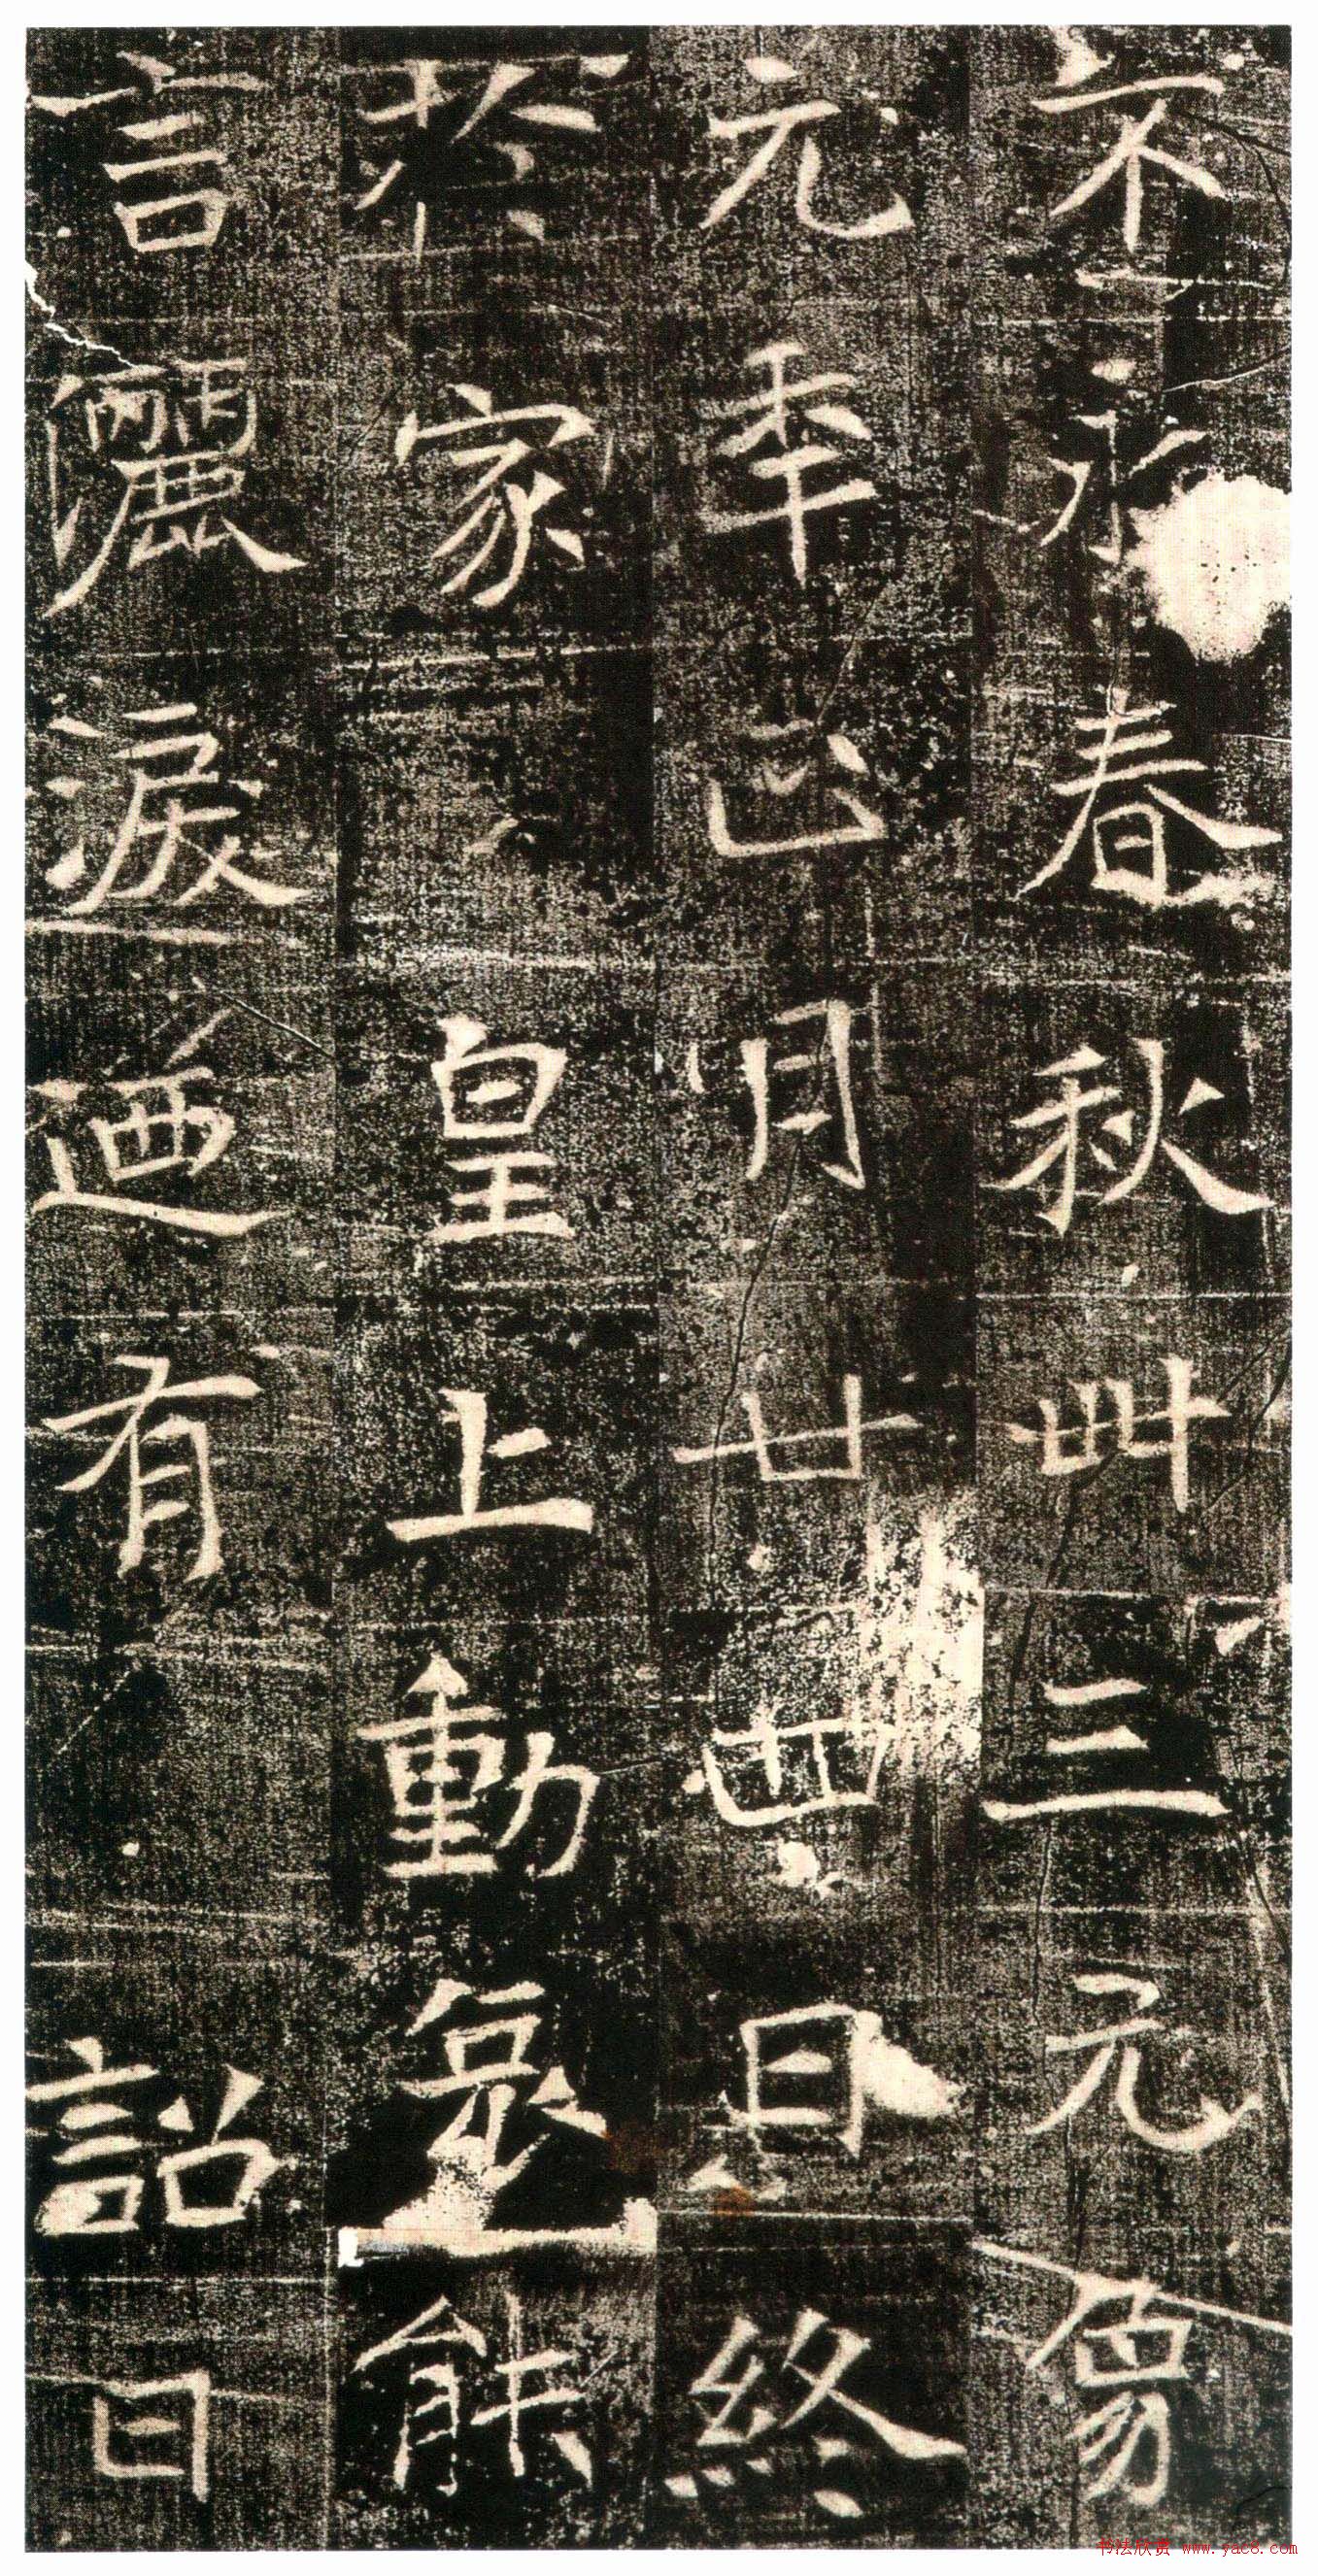 不永春秋卌三元象
元年正月廿四日終
於家 皇上動哀能
言灑淚迺有 詔曰
书法欣赏 www.yac8.com